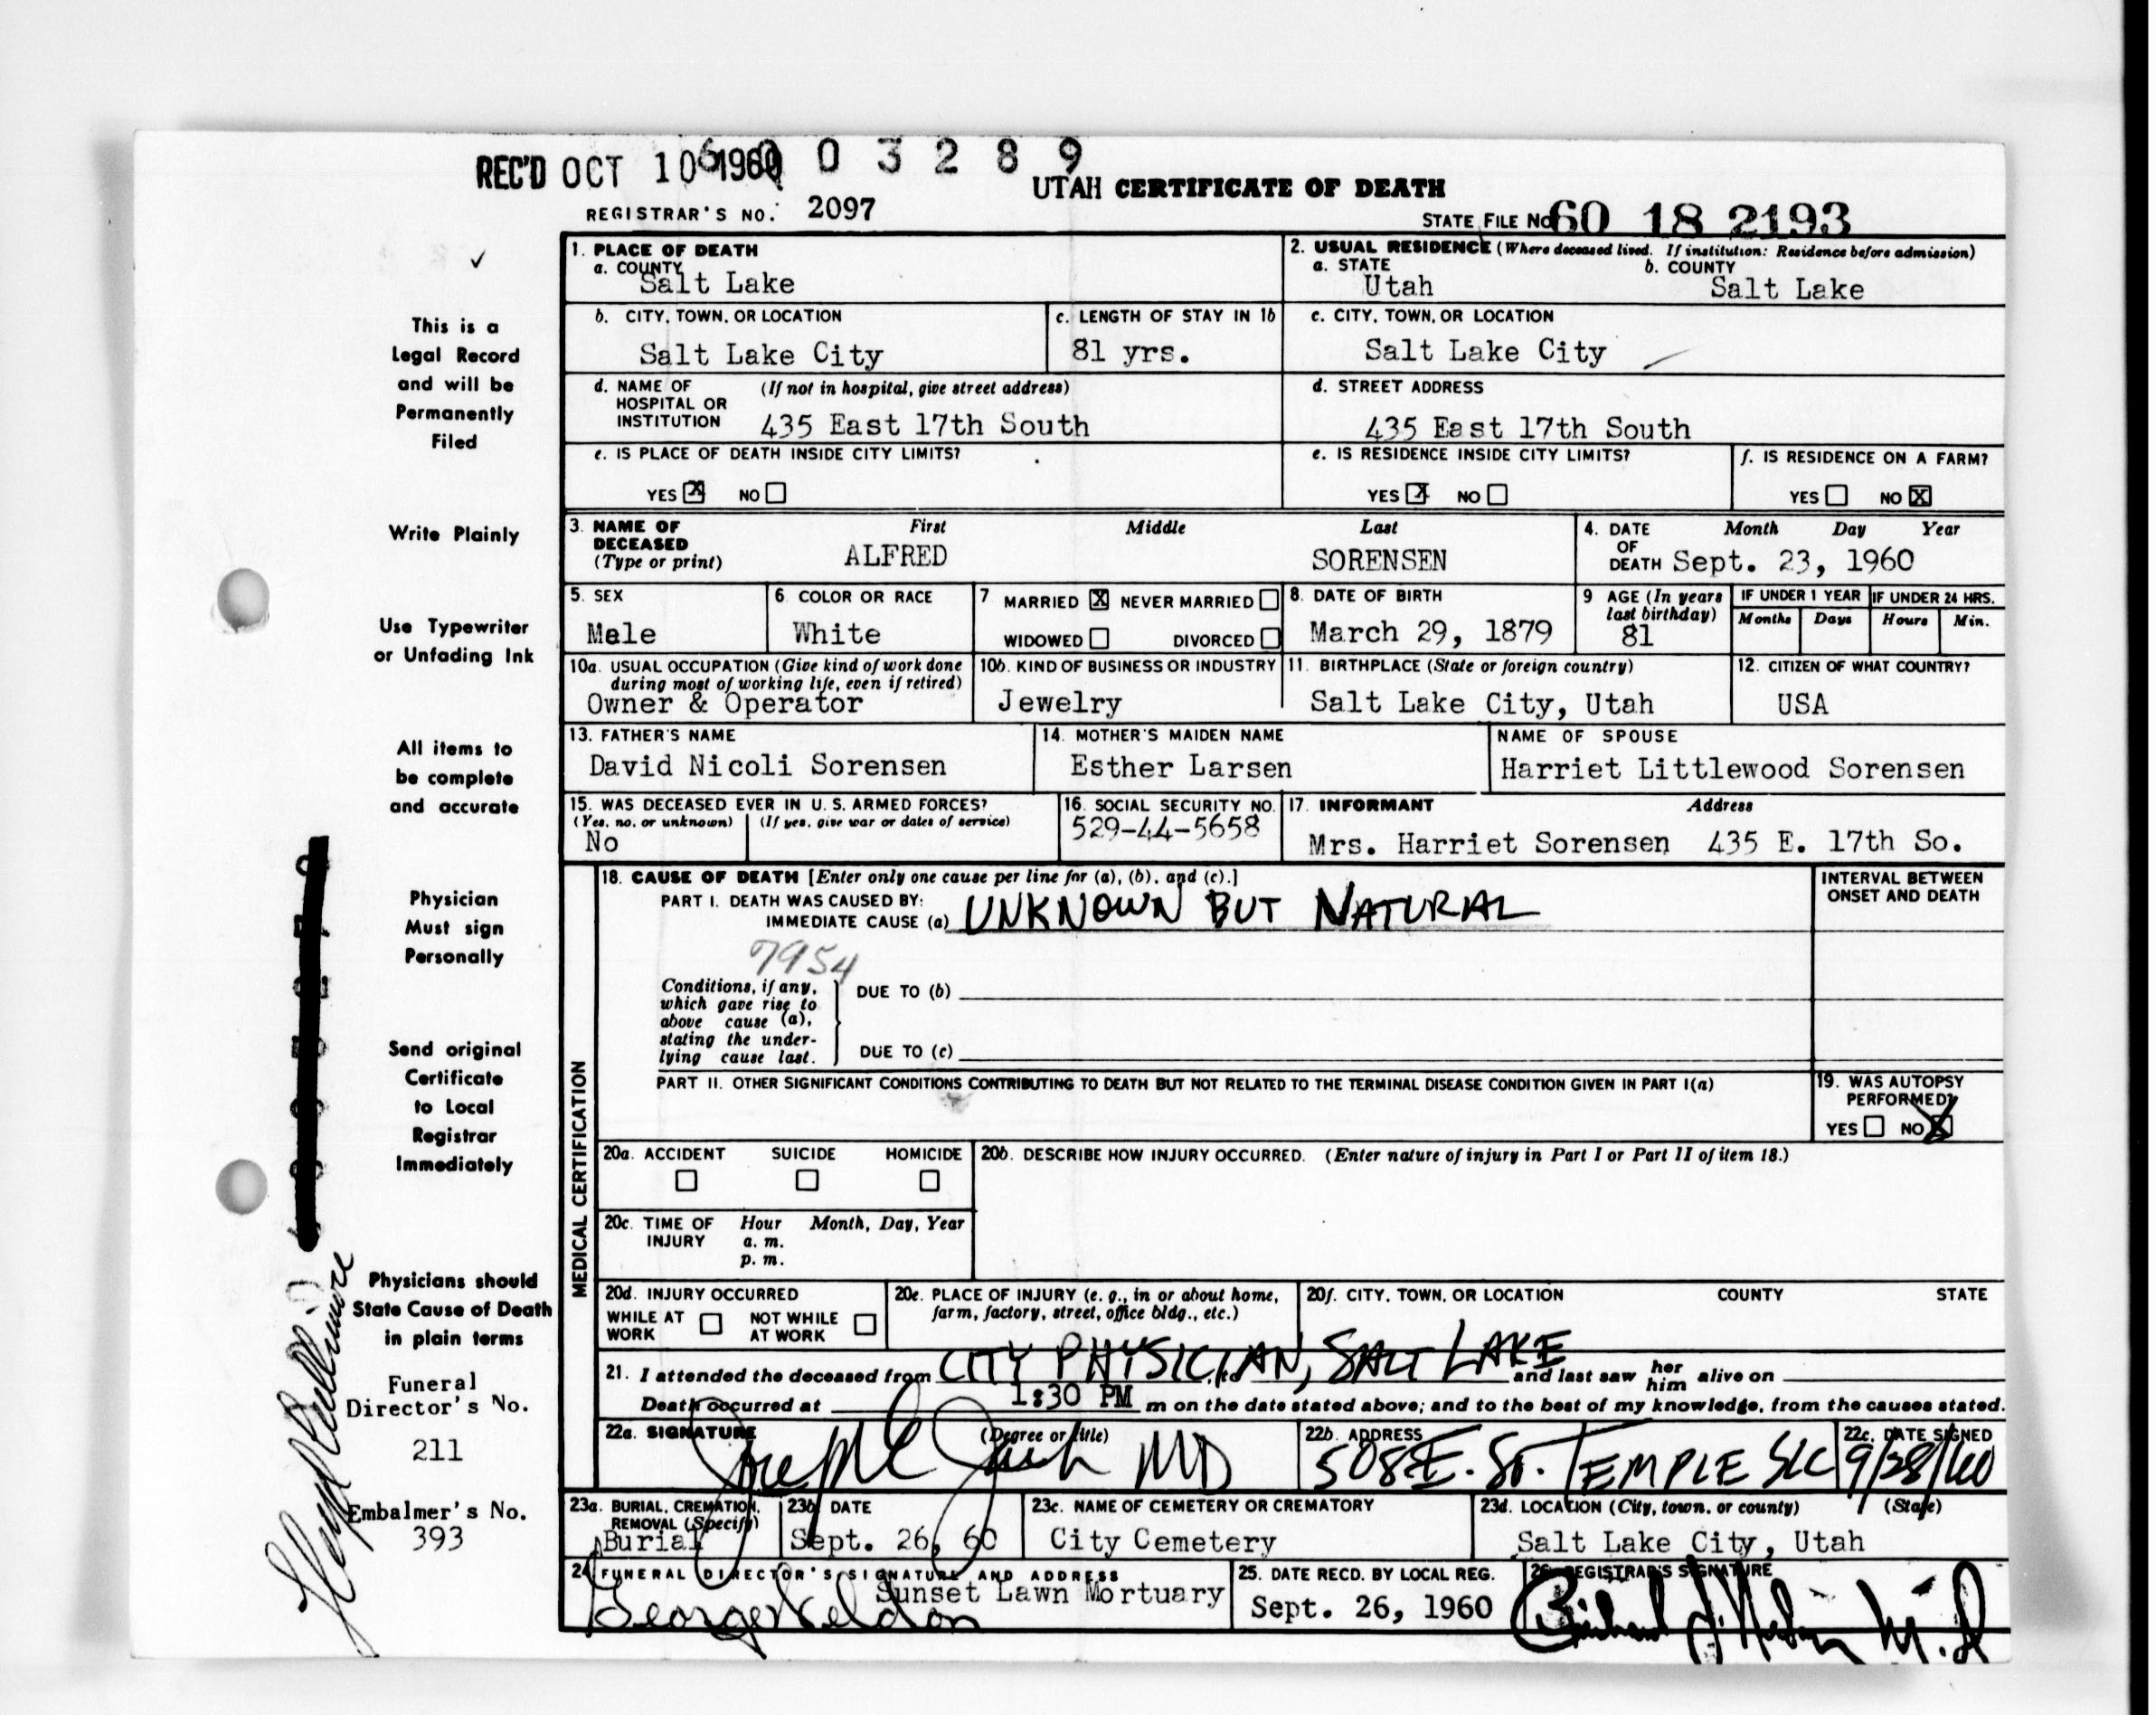 REC'D OCT 10 1960 6 0 0 3 2 8 9
UTAH CERTIFICATE OF DEATH
REGISTRAR'S NO. 2097
STATE FILE No 60 18 2193
1. PLACE OF DEATH
a. COUNTY
Salt Lake
2. USUAL RESIDENCE (Where deceased lived. If institution: Residence before admission)
a. STATE b. COUNTY
Utah Salt Lake
b. CITY, TOWN, OR LOCATION
Salt Lake City
c. LENGTH OF STAY IN 1b
81 yrs.
c. CITY, TOWN, OR LOCATION
Salt Lake City
d. NAME OF HOSPITAL OR INSTITUTION (If not in hospital, give street address)
435 East 17th South
d. STREET ADDRESS
435 East 17th South
e. IS PLACE OF DEATH INSIDE CITY LIMITS?
YES X NO
e. IS RESIDENCE INSIDE CITY LIMITS?
YES X NO
f. IS RESIDENCE ON A FARM?
YES NO X
3. NAME OF DECEASED (Type or print)
First Middle Last
ALFRED SORENSEN
4. DATE OF DEATH Month Day Year
Sept. 23, 1960
5. SEX
Male
6. COLOR OR RACE
White
7 MARRIED X NEVER MARRIED
WIDOWED DIVORCED
8. DATE OF BIRTH
March 29, 1879
9 AGE (In years last birthday)
81
IF UNDER 1 YEAR IF UNDER 24 HRS.
Months Days Hours Min.
10a. USUAL OCCUPATION (Give kind of work done during most of working life, even if retired)
Owner & Operator
10b. KIND OF BUSINESS OR INDUSTRY
Jewelry
11. BIRTHPLACE (State or foreign country)
Salt Lake City, Utah
12. CITIZEN OF WHAT COUNTRY?
USA
13. FATHER'S NAME
David Nicoli Sorensen
14. MOTHER'S MAIDEN NAME
Esther Larsen
NAME OF SPOUSE
Harriet Littlewood Sorensen
15. WAS DECEASED EVER IN U. S. ARMED FORCES?
(Yes, no, or unknown) (If yes, give war or dates of service)
No
16. SOCIAL SECURITY NO.
529-44-5658
17. INFORMANT Address
Mrs. Harriet Sorensen 435 E. 17th So.
MEDICAL CERTIFICATION
18. CAUSE OF DEATH [Enter only one cause per line for (a), (b), and (c).]
PART I. DEATH WAS CAUSED BY:
IMMEDIATE CAUSE (a) UNKNOWN BUT NATURAL
INTERVAL BETWEEN ONSET AND DEATH
7954
Conditions, if any, which gave rise to above cause (a), stating the underlying cause last.
DUE TO (b)
DUE TO (c)
PART II. OTHER SIGNIFICANT CONDITIONS CONTRIBUTING TO DEATH BUT NOT RELATED TO THE TERMINAL DISEASE CONDITION GIVEN IN PART I(a)
19. WAS AUTOPSY PERFORMED?
YES NO X
20a. ACCIDENT SUICIDE HOMICIDE
20b. DESCRIBE HOW INJURY OCCURRED. (Enter nature of injury in Part I or Part II of item 18.)
20c. TIME OF INJURY Hour Month, Day, Year
a. m.
p. m.
20d. INJURY OCCURRED
WHILE AT WORK NOT WHILE AT WORK
20e. PLACE OF INJURY (e. g., in or about home, farm, factory, street, office bldg., etc.)
20f. CITY, TOWN, OR LOCATION COUNTY STATE
21. I attended the deceased from CITY PHYSICIAN, SALT LAKE and last saw her him alive on
Death occurred at 1:30 PM m on the date stated above; and to the best of my knowledge, from the causes stated.
22a. SIGNATURE (Degree or title)
MD
22b. ADDRESS
508 E. So. TEMPLE SLC
22c. DATE SIGNED
9/28/60
23a. BURIAL, CREMATION, REMOVAL (Specify)
Burial
23b. DATE
Sept. 26, 60
23c. NAME OF CEMETERY OR CREMATORY
City Cemetery
23d. LOCATION (City, town, or county) (State)
Salt Lake City, Utah
24 FUNERAL DIRECTOR'S SIGNATURE AND ADDRESS
Sunset Lawn Mortuary
25. DATE RECD. BY LOCAL REG.
Sept. 26, 1960
26. REGISTRAR'S SIGNATURE
This is a
Legal Record
and will be
Permanently
Filed
Write Plainly
Use Typewriter
or Unfading Ink
All items to
be complete
and accurate
Physician
Must sign
Personally
Send original
Certificate
to Local
Registrar
Immediately
Physicians should
State Cause of Death
in plain terms
Funeral
Director's No.
211
Embalmer's No.
393